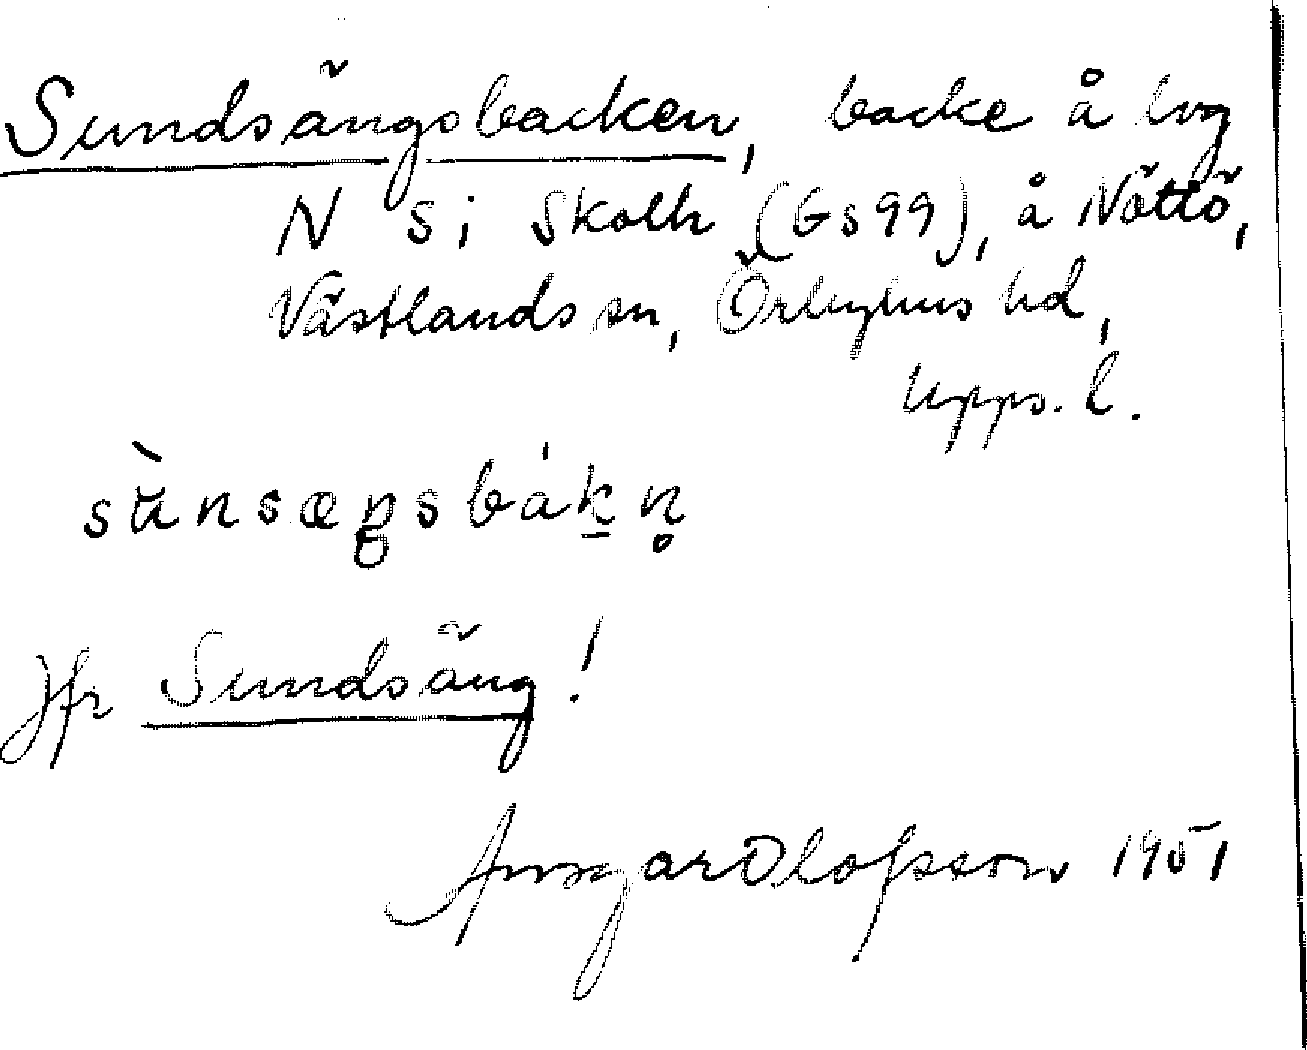 Sundsängsbacken, backe å lvg
N s i Skolh (Gs 99), å Nöttö,
Västlands sn, Örbyhus hd,
Upps. l.
sùnsæŋsbákn̥
Jfr Sundsäng!
Ansgar Olofsson 1951